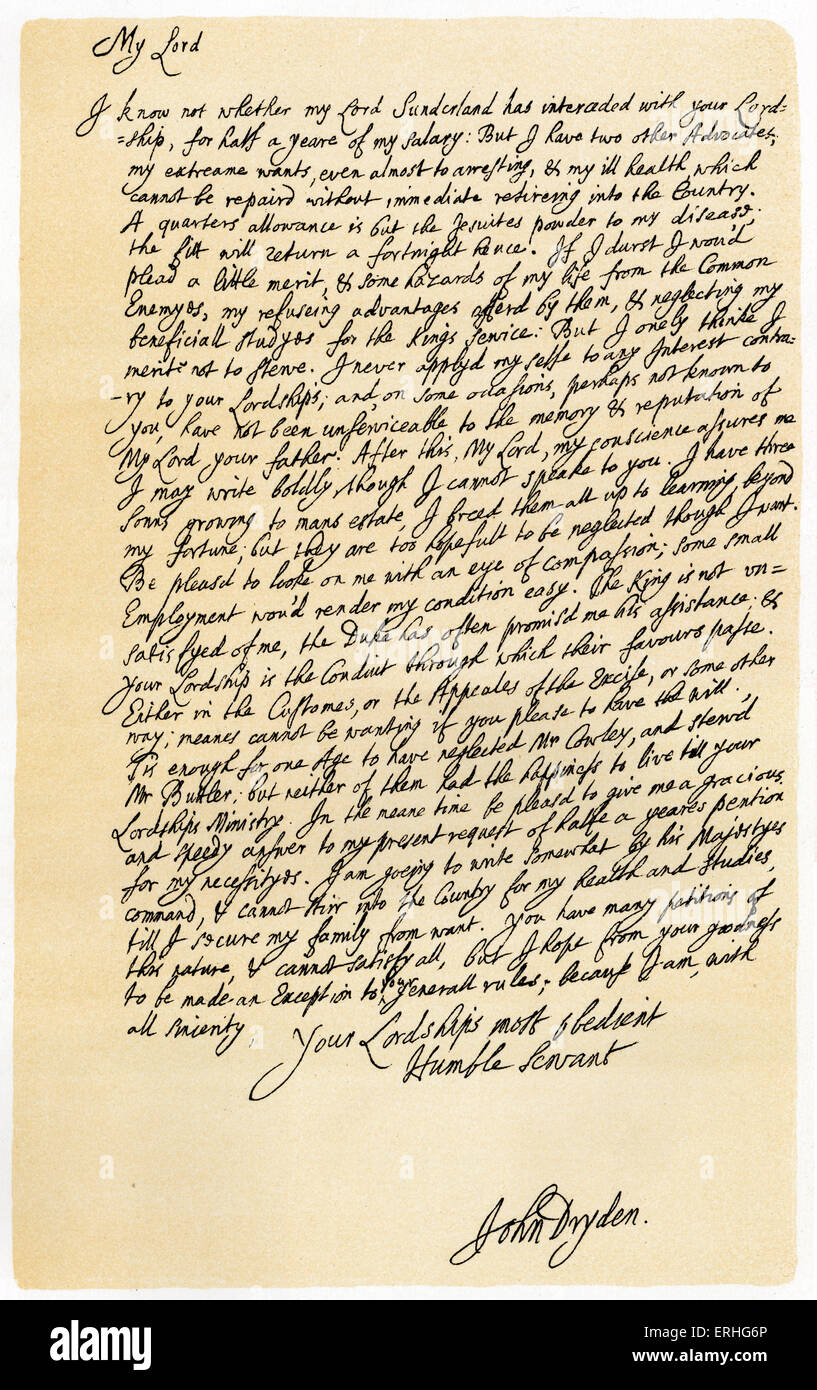 My Lord
I know not whether my Lord Sunderland has interceded with your Lord=
=ship, for half a yeare of my salary: But I have two other Advocates,
my extreame wants, even almost to arresting, & my ill health, which
cannot be repaird without immediate retireing into the Country.
A quarters allowance is but the Jesuites powder to my disease;
the fitt will return a fortnight hence. If I durst I wou'd
plead a little merit, & some hazards of my life from the Common
Enemyes, my refuseing advantages offerd by them, & neglecting my
beneficiall studyes for the Kings service: But I onely thinke I
merit not to sterve. I never applyd my selfe to any Interest contra-
-ry to your Lordships; and, on some occasions, perhaps not known to
you, have not been unserviceable to the memory & reputation of
My Lord your father. After this, My Lord, my conscience assures me
I may write boldly, though I cannot speake to you. I have three
Sonns growing to mans estate, I breed them all up to learning, beyond
my fortune; but they are too hopefull to be neglected though I want.
Be pleasd to looke on me with an eye of compassion; some small
Employment wou'd render my condition easy. The King is not un=
satisfyed of me, the Duke has often promisd me his assistance; &
your Lordship is the Conduit through which their favours passe.
Either in the Customes, or the Appeales of the Excise, or some other
way; meanes cannot be wanting if you please to have the will.
Tis enough for one Age to have neglected Mr Cowley, and sterv'd
Mr Buttler; but neither of them had the happiness to live till your
Lordships Ministry. In the meane time be pleasd to give me a gracious
and speedy answer to my present request of halfe a yeares pention
for my necessityes. I am goeing to write somewhat by his Majestyes
command, & cannot stirr into the Country for my health and studies,
till I secure my family from want. You have many petitions of
this nature, & cannot satisfy all, but I hope from your goodness
to be made an Exception to your generall rules; because I am, with
all sincerity,
Your Lordships most obedient
Humble Servant
John Dryden.
a
alamy
alamy stock photo
ERHG6P
www.alamy.com